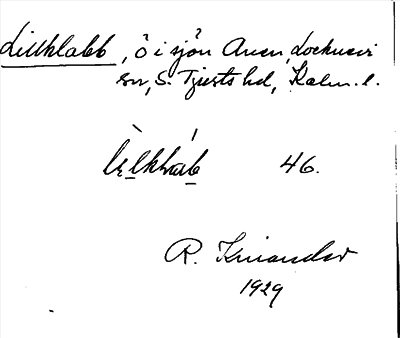 Lillklabb, ö i sjön Aven, Locknevi
sn, S. Tjusts hd, Kalm. l.
lìlkláb 46.
R. Kniander
1929